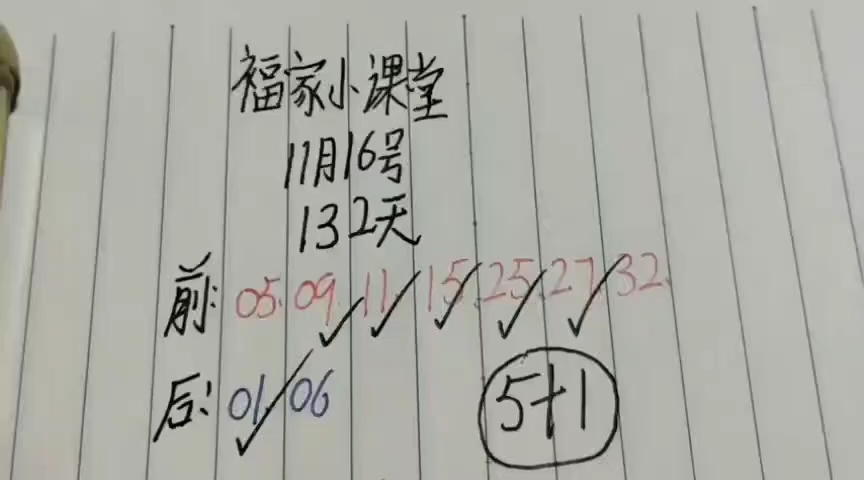 福家小课堂
11月16号
132天
前: 05. 09. 11. 15. 25. 27. 32.
后: 01. 06
5+1